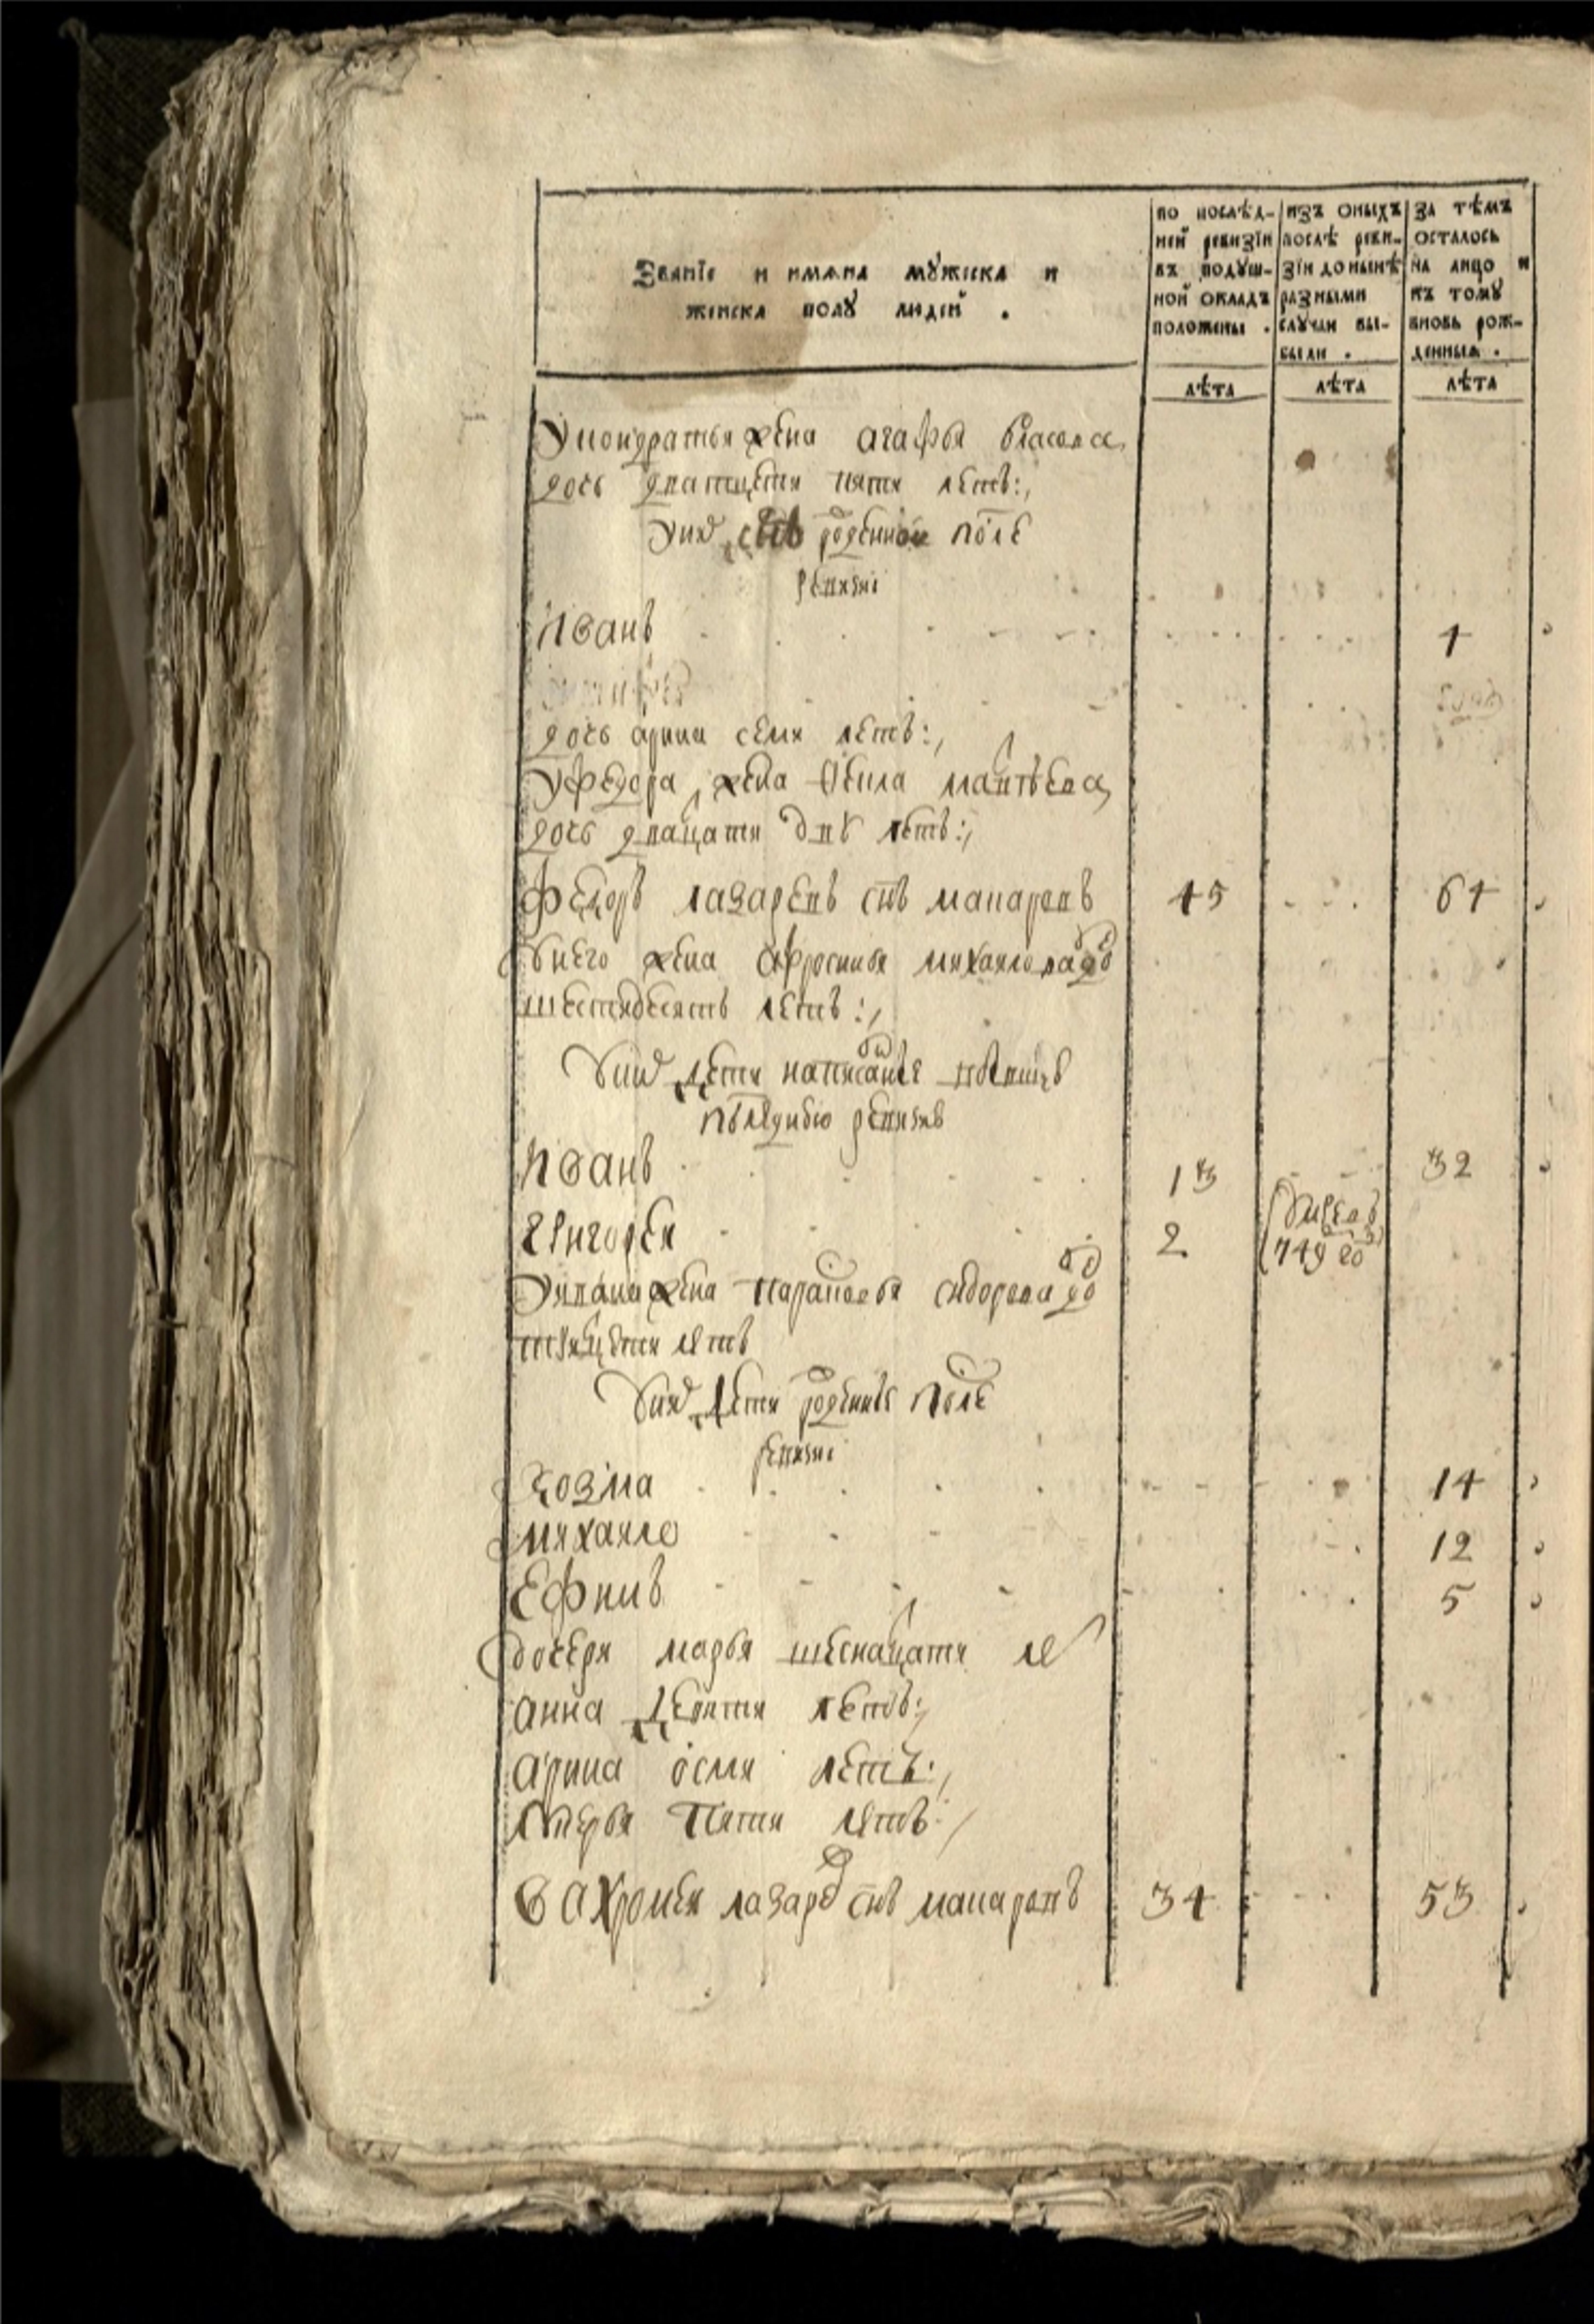 Званїе и имѧна мꙋжска и
женска полꙋ людей .
по послѣд-
ней ревизїи
въ подꙋш-
ной окладъ
положены .
изъ оныхъ
послѣ реви-
зїи до нынѣ
разными
слꙋчаи вы-
были .
за тѣмъ
осталось
на лицо и
къ томꙋ
вновь рож-
денныѧ .
лѣта
лѣта
лѣта
У кондратья жена агафья власова
дочь дватцети пяти летъ:,
У них снъ рожденной после
ревизи
Иванъ 1
дочь арина семи летъ:,
У федора жена
дочь дватцати дву летъ:,
Федоръ лазаревъ снъ макаровъ 45 64
У него жена афросинья михаилова до
шестидесятъ летъ:,
У них дети написаные
ревизию
Иванъ 13 32
Григорей 2 умре в
749 го
У ивана жена парасковья сидорова до
тритцети летъ
У них дети рожденые после
ревизи
Козма 14
михаило 12
Ефимъ 5
дочери марья шеснацати ле
анна девяти летъ:,
арина осми летъ:,
пяти летъ:,
Вахромей лазарев снъ макаровъ 34 53